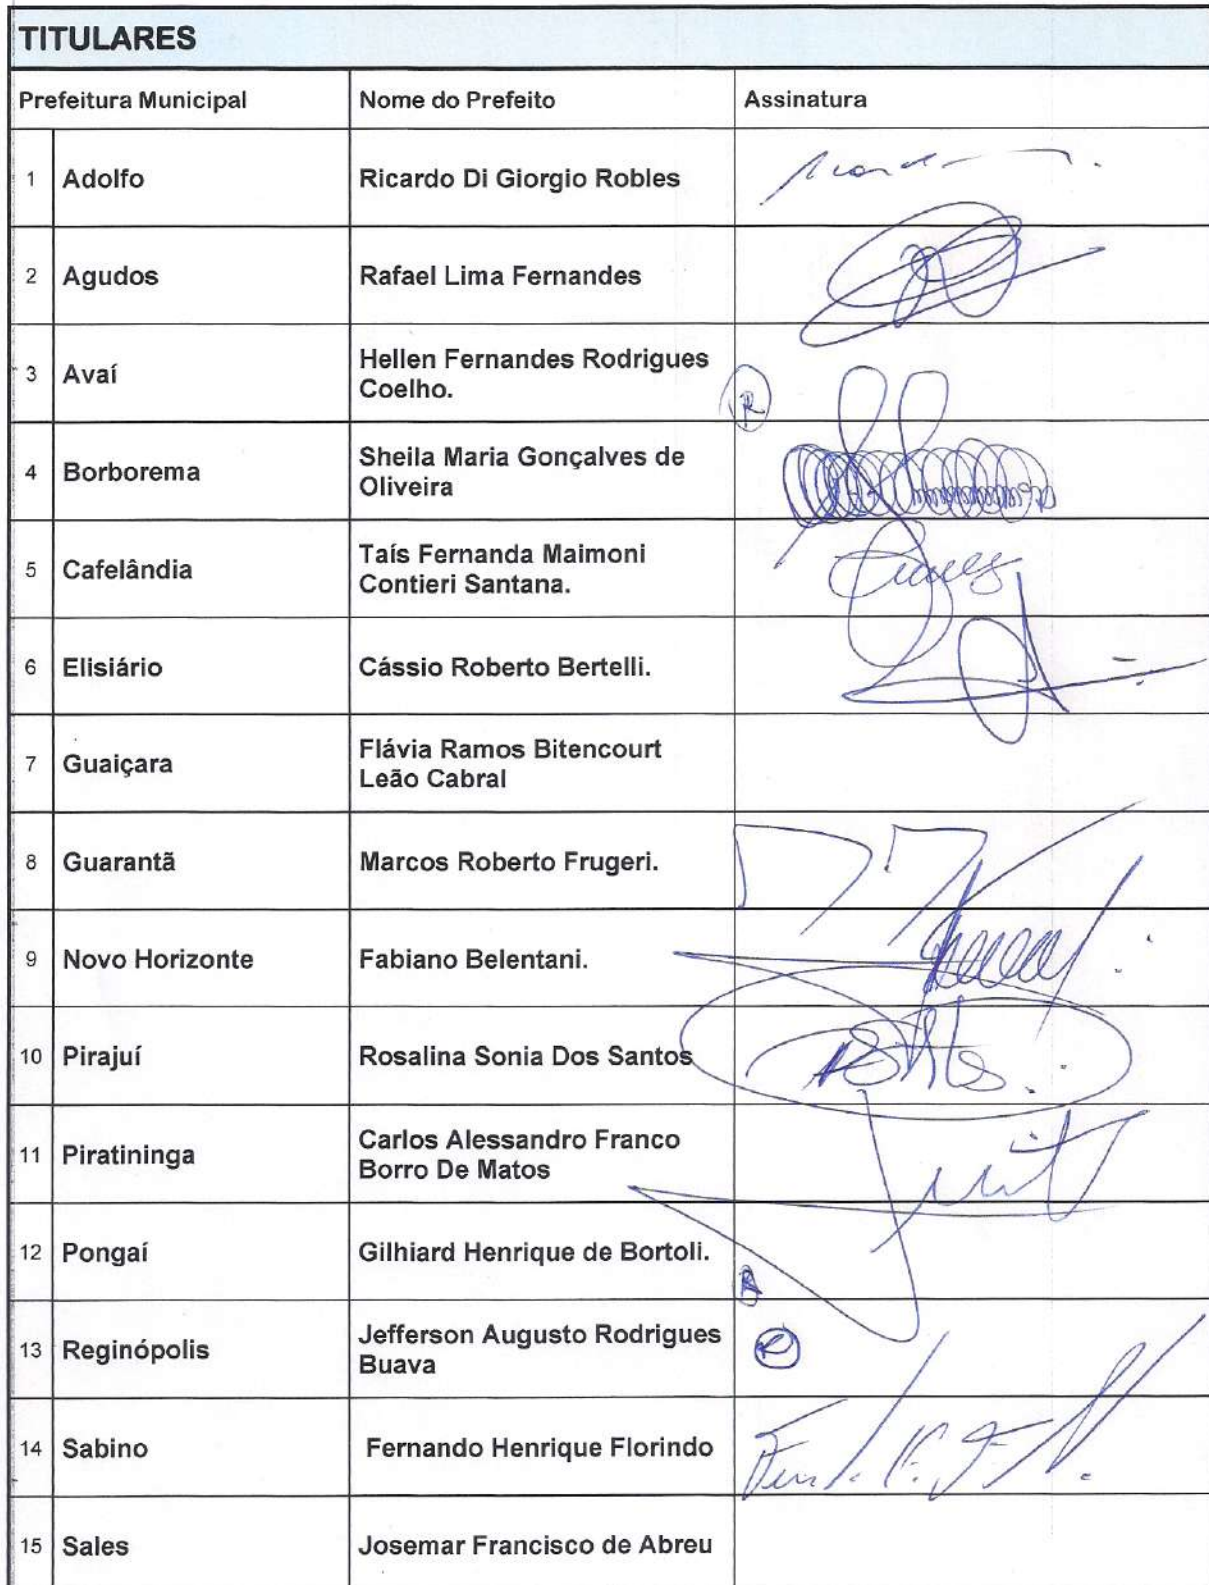 TITULARES
Prefeitura Municipal Nome do Prefeito Assinatura
1 Adolfo Ricardo Di Giorgio Robles
2 Agudos Rafael Lima Fernandes
3 Avaí Hellen Fernandes Rodrigues
Coelho.
4 Borborema Sheila Maria Gonçalves de
Oliveira
5 Cafelândia Taís Fernanda Maimoni
Contieri Santana.
6 Elisiário Cássio Roberto Bertelli.
7 Guaiçara Flávia Ramos Bitencourt
Leão Cabral
8 Guarantã Marcos Roberto Frugeri.
9 Novo Horizonte Fabiano Belentani.
10 Pirajuí Rosalina Sonia Dos Santos
11 Piratininga Carlos Alessandro Franco
Borro De Matos
12 Pongaí Gilhiard Henrique de Bortoli.
13 Reginópolis Jefferson Augusto Rodrigues
Buava
14 Sabino Fernando Henrique Florindo
15 Sales Josemar Francisco de Abreu